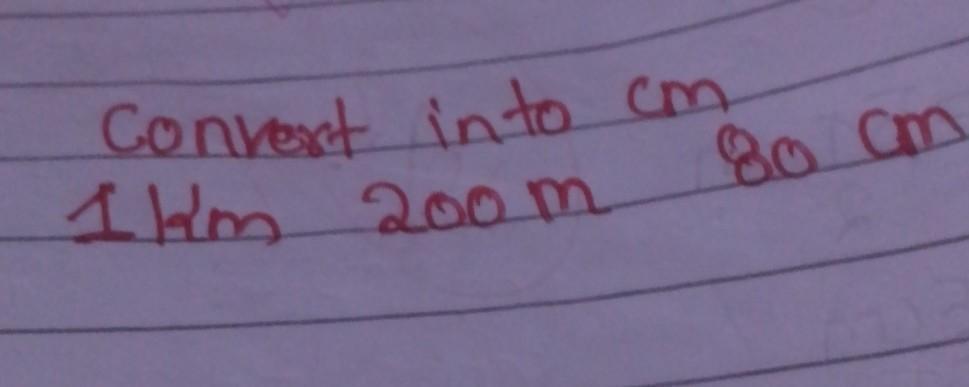 Convert into cm
1 Km 200 m 80 cm